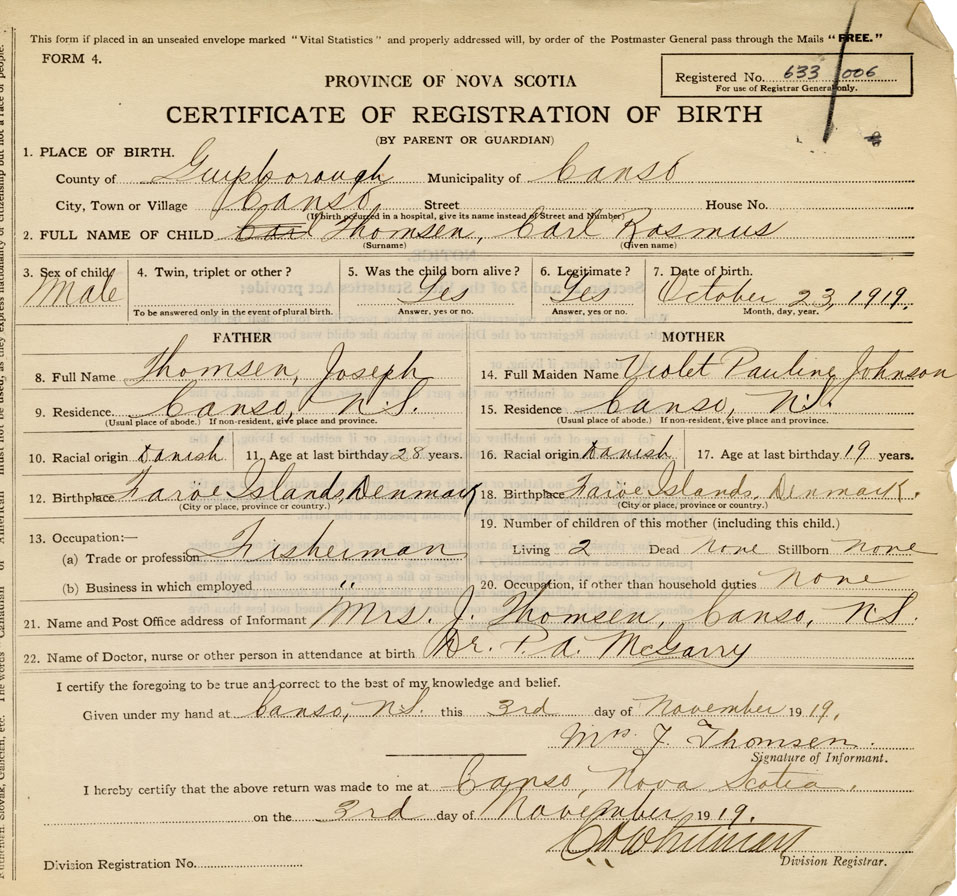 This form if placed in an unsealed envelope marked "Vital Statistics" and properly addressed will, by order of the Postmaster General pass through the Mails "FREE."
FORM 4.
Registered No. 633 006
For use of Registrar General only.
PROVINCE OF NOVA SCOTIA
CERTIFICATE OF REGISTRATION OF BIRTH
(BY PARENT OR GUARDIAN)
1. PLACE OF BIRTH.
County of Guysborough Municipality of Canso
City, Town or Village Canso Street House No.
(If birth occurred in a hospital, give its name instead of Street and Number)
2. FULL NAME OF CHILD Thomsen, Carl Rasmus
(Surname) (Given name)
3. Sex of child? 4. Twin, triplet or other? 5. Was the child born alive? 6. Legitimate? 7. Date of birth.
Male Yes Yes October 23, 1919.
To be answered only in the event of plural birth. Answer, yes or no. Answer, yes or no. Month, day, year.
FATHER
8. Full Name Thomsen, Joseph
9. Residence. Canso, N.S.
(Usual place of abode.) If non-resident, give place and province.
10. Racial origin Danish 11. Age at last birthday 28 years.
12. Birthplace Faroe Islands, Denmark
(City or place, province or country.)
13. Occupation:—
(a) Trade or profession Fisherman
(b) Business in which employed "
MOTHER
14. Full Maiden Name Violet Pauline Johnson
15. Residence Canso, N.S.
(Usual place of abode.) If non-resident, give place and province.
16. Racial origin Danish 17. Age at last birthday 19 years.
18. Birthplace Faroe Islands, Denmark.
(City or place, province or country.)
19. Number of children of this mother (including this child.)
Living 2 Dead none Stillborn none
20. Occupation, if other than household duties none
21. Name and Post Office address of Informant Mrs. J. Thomsen, Canso, N.S.
22. Name of Doctor, nurse or other person in attendance at birth Dr. P. A. McGarry
I certify the foregoing to be true and correct to the best of my knowledge and belief.
Given under my hand at Canso, N.S. this 3rd day of November 1919.
Mrs J. Thomsen.
Signature of Informant.
I hereby certify that the above return was made to me at Canso, Nova Scotia,
on the 3rd day of November 1919.
Whitman
Division Registrar.
Division Registration No.